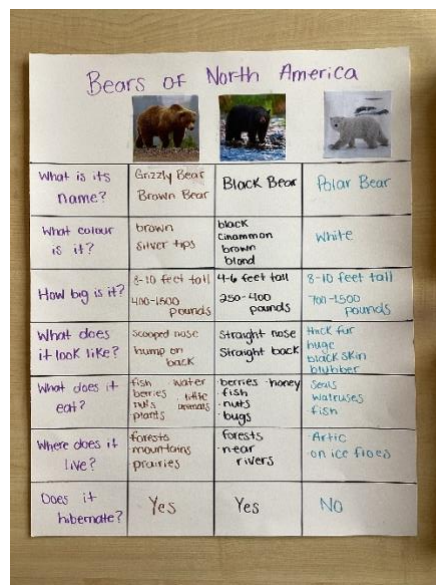 Bears of North America
What is its name?
Grizzly Bear
Brown Bear
Black Bear
Polar Bear
What colour is it?
brown
silver tips
black
Cinammon
brown
blond
White
How big is it?
8-10 feet tall
400-1500 pounds
4-6 feet tall
250-400 pounds
8-10 feet tall
700-1500 pounds
What does it look like?
Scooped nose
hump on back
Straight nose
Straight back
thick fur
huge
black skin
blubber
What does it eat?
fish water
berries little
nuts animals
plants
berries · honey
· fish
· nuts
· bugs
Seals
walruses
fish
Where does it live?
forests
mountains
prairies
forests
near rivers
· Artic
· on ice floes
Does it hibernate?
Yes
Yes
No